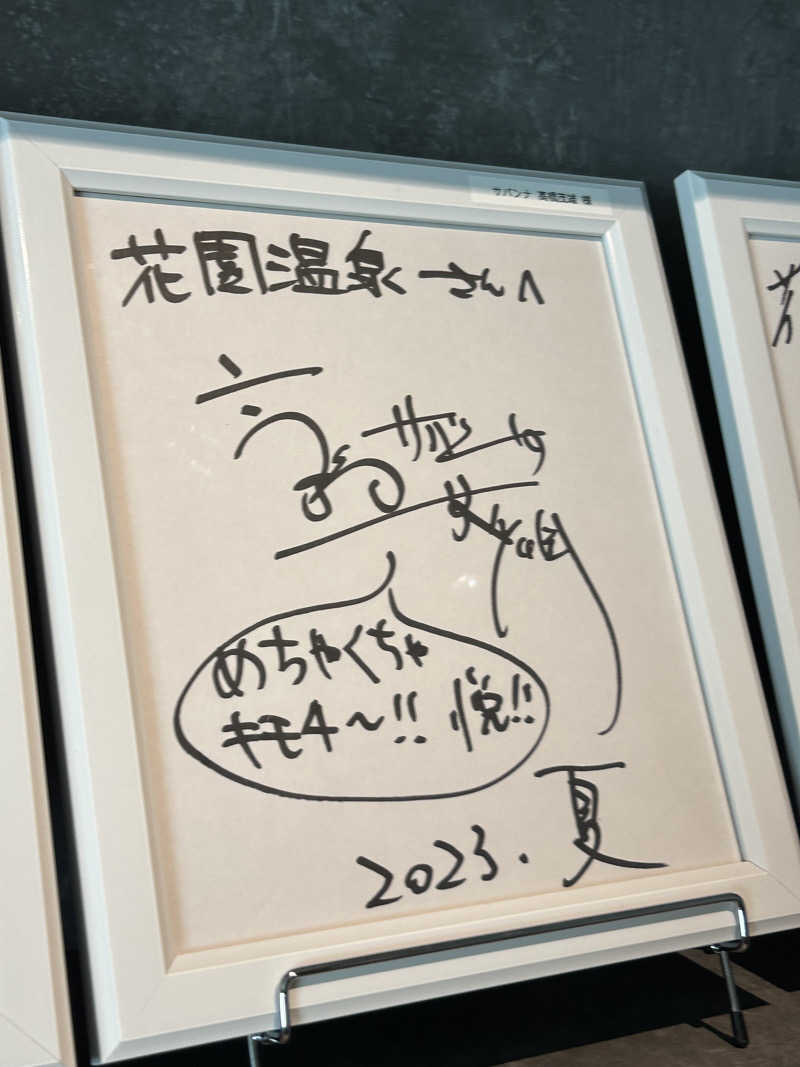 サバンナ 高橋茂雄 様
花園温泉さんへ
サバンナ
めちゃくちゃ
キモチ〜!! 悦!!
2023.夏